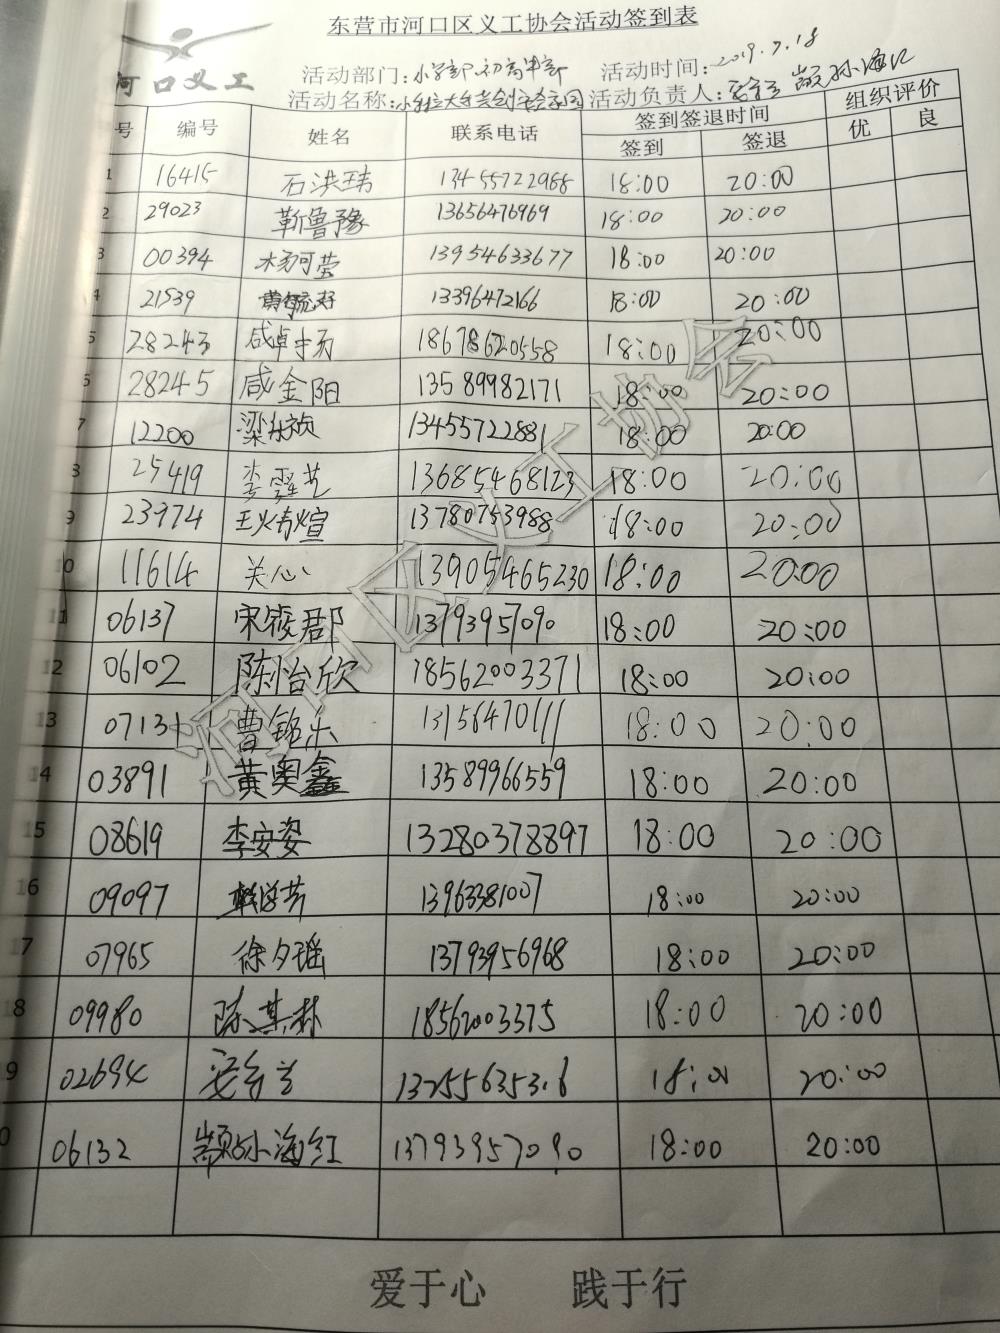 东营市河口区义工协会活动签到表
河口义工
活动部门:小学部、初高中部 活动时间:2019.7.18
活动名称: 活动负责人:
号 编号 姓名 联系电话 签到签退时间 组织评价
签到 签退 优 良
1 16415 石洪玮 13455722988 18:00 20:00
2 29023 靳鲁豫 13656476969 18:00 20:00
3 00394 杨河莹 13954633677 18:00 20:00
4 21539 13396472166 18:00 20:00
5 28243 18678620558 18:00 20:00
6 28245 咸金阳 13589982171 18:00 20:00
7 12200 梁东祯 13455722881 18:00 20:00
8 25419 李霏艺 13685468123 18:00 20:00
9 23974 王烯煊 13780753988 18:00 20:00
10 11614 关心 13905465230 18:00 20:00
11 06137 宋筱郡 13793957090 18:00 20:00
12 06102 陈怡欣 18562003371 18:00 20:00
13 07131 曹铭乐 13156470111 18:00 20:00
14 03891 黄奥鑫 13589966559 18:00 20:00
15 08619 李安姿 13280378897 18:00 20:00
16 09097 13963381007 18:00 20:00
17 07965 徐夕瑶 13793956968 18:00 20:00
18 09980 陈其林 18562003375 18:00 20:00
9 02694 18:00 20:00
0 06132 颛孙海红 13793957090 18:00 20:00
河口区义工协会
爱于心 践于行